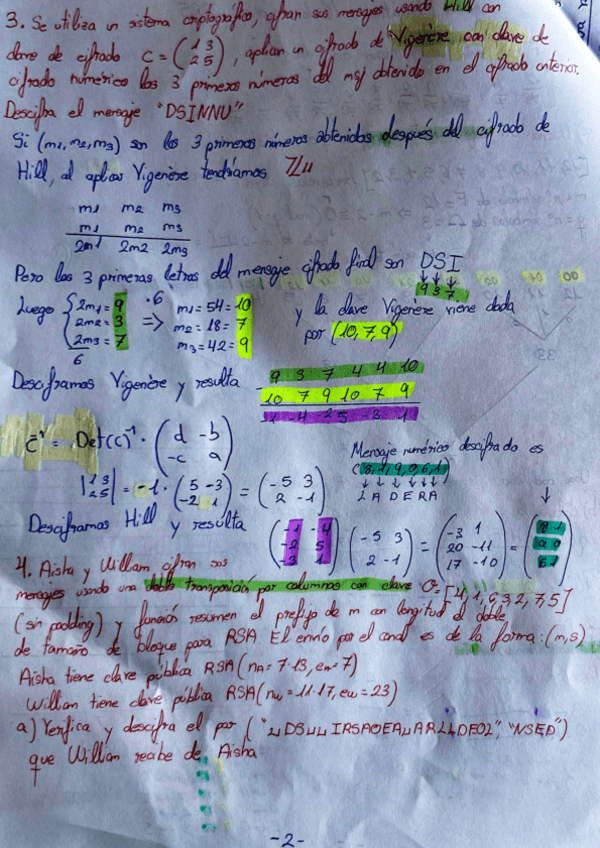 3. Se utiliza un sistema criptográfico, cifran sus mensajes usando Hill con
clave de cifrado C = (1 3 2 5), aplican un cifrado de Vigenère con clave de
cifrado numérico los 3 primeros números del msj obtenido en el cifrado anterior.
Descifra el mensaje "DSINNU"
Si (m1, m2, m3) son los 3 primeros números obtenidos después del cifrado de
Hill, al aplicar Vigenère tendríamos Z11
m1 m2 m3
m1 m2 m3
2m1 2m2 2m3
Pero las 3 primeras letras del mensaje cifrado final son DSI
9 3 7
Luego { 2m1 = 9 ·6 m1 = 54 = 10 y la clave Vigenère viene dada
2m2 = 3 => m2 = 18 = 7 por (10, 7, 9)
2m3 = 7 m3 = 42 = 9
6
Desciframos Vigenère y resulta 9 3 7 4 4 10
- 10 7 9 10 7 9
-1 -4 -2 5 -3 1
C⁻¹ = Det(c)⁻¹ · (d -b -c a)
Mensaje numérico descifrado es
(8, 1, 9, 0, 6, 1)
↓ ↓ ↓ ↓ ↓ ↓
L A D E R A
|1 3 2 5| = -1 · (5 -3 -2 1) = (-5 3 2 -1)
Desciframos Hill y resulta
(-1 -4 -2 5 -3 1) (-5 3 2 -1) = (-3 1 20 -11 17 -10) = (8 1 9 0 6 1)
4. Aisha y William cifran sus
mensajes usando una doble transposición por columnas con clave σ = [4, 1, 6, 3, 2, 7, 5]
(sin padding) y función resumen el prefijo de m con longitud el doble
de tamaño de bloque para RSA. El envío por el canal es de la forma: (m, s)
Aisha tiene clave pública RSA (nA = 7·13, eA = 7)
William tiene clave pública RSA (nw = 11·17, ew = 23)
a) Verifica y descifra el par ("␣DS␣␣IRSAOEA␣ARLLDEOL", "NSED")
que William recibe de Aisha
-2-